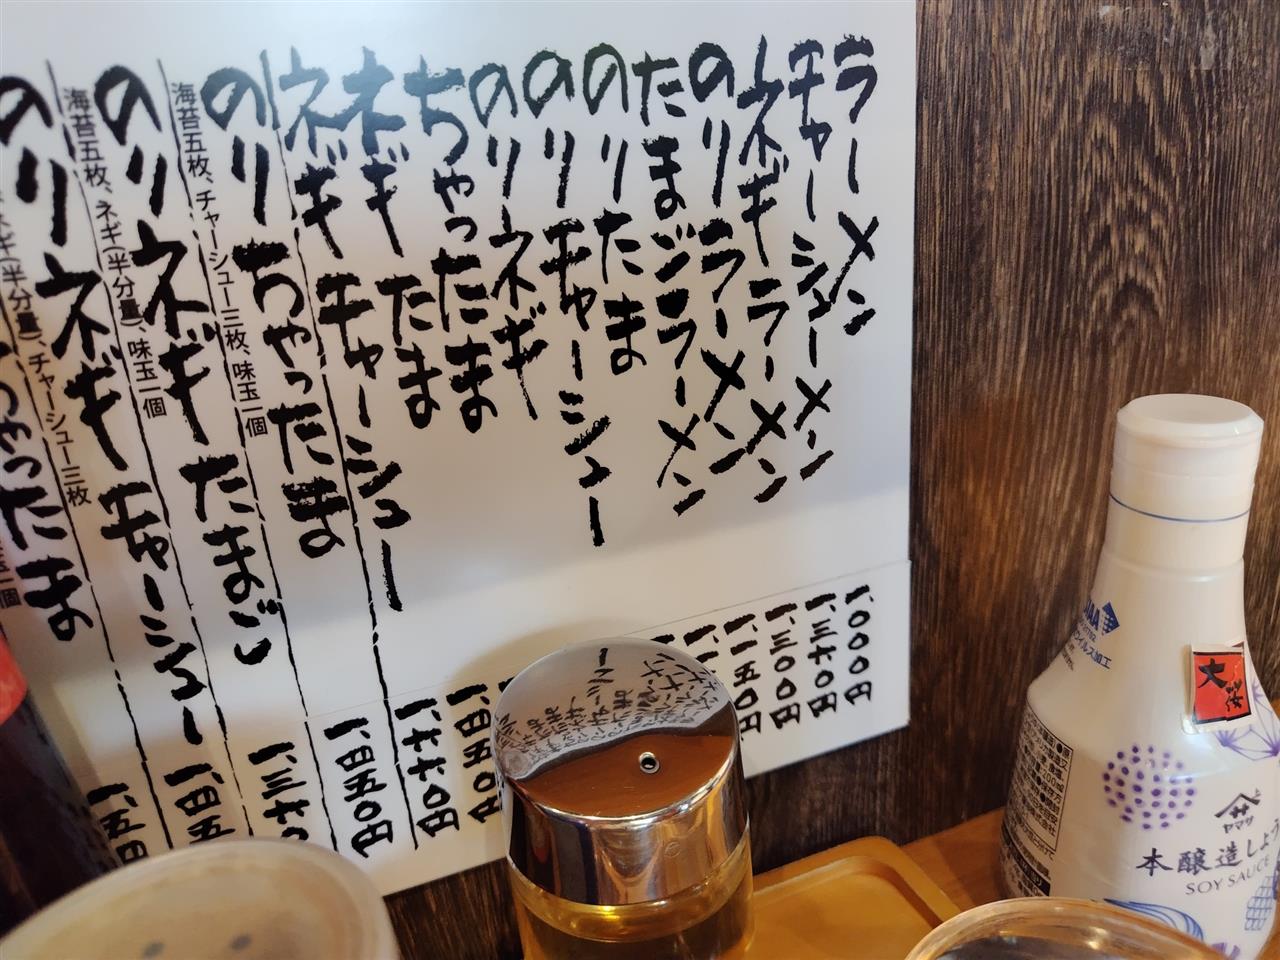 ラーメン
チャーシューメン
ネギラーメン
のりラーメン
たまごラーメン
のりたま
のりチャーシュー
のりネギ
ちゃったま
ネギたま
ネギチャーシュー
のりちゃったま
海苔五枚、チャーシュー三枚、味玉一個
のりネギたまご
海苔五枚、ネギ(半分量)、味玉一個
のりネギチャーシュー
ネギ(半分量)、チャーシュー三枚
のりネギちゃったま
一、〇〇〇円
一、三六〇円
一、三〇〇円
一、一五〇円
一、四五〇円
一、六六〇円
一、四五〇円
一、三六
一、四五
一、五
大桜
ヤマサ
本醸造しょ
SOY SAUCE